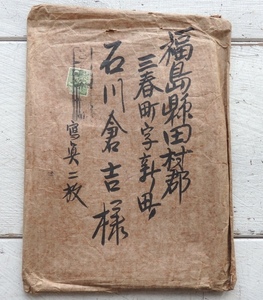 福島縣田村郡
三春町字新町
石川倉吉様
寫真二枚